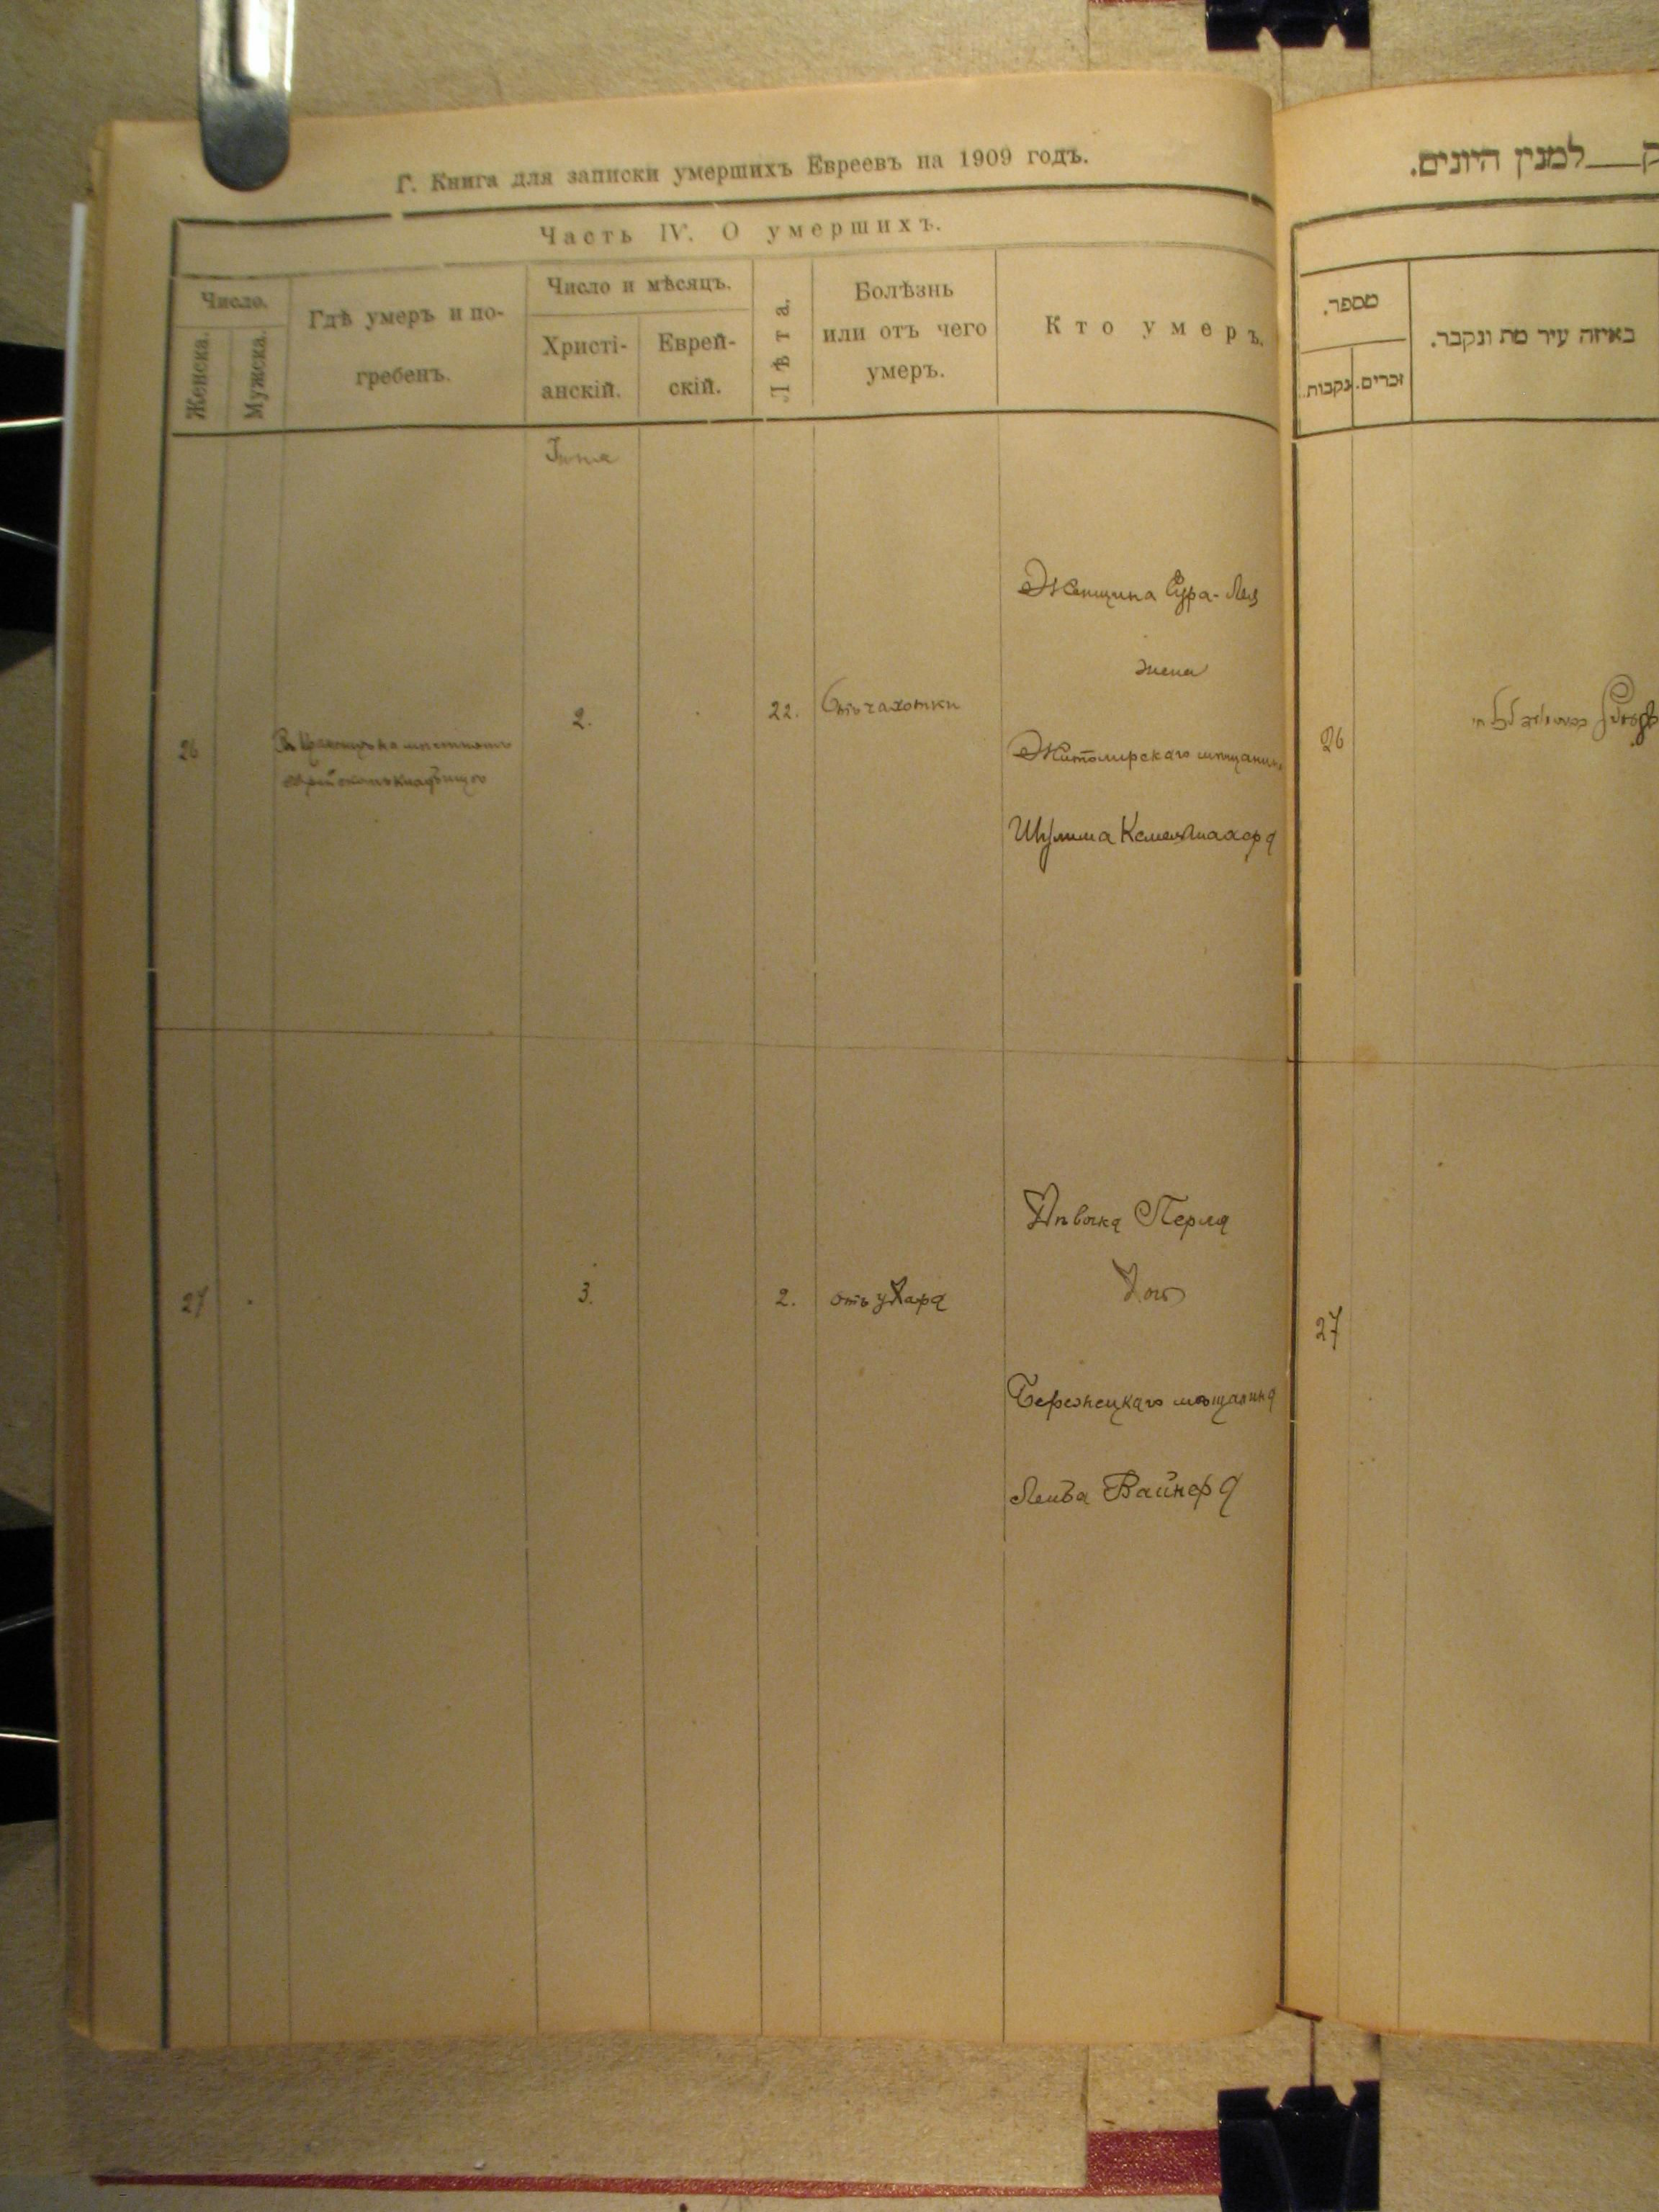 Г. Книга для записки умершихъ Евреевъ на 1909 годъ.
Часть IV. О умершихъ.
Число.
Женска.
Мужска.
Гдѣ умеръ и по-
гребенъ.
Число и мѣсяцъ.
Христі-
анскій.
Еврей-
скій.
Лѣта.
Болѣзнь
или отъ чего
умеръ.
Кто умеръ.
26
еврейскомъ кладбищѣ
2.
22.
Отъ чахотки
Женщина Сура-Лея
жена
Житомирскаго мѣщанина
Шулима
27
3.
2.
отъ удара
Дѣвочка Перля
Дочь
мѣщанина
Лейба Вайнера
למנין היונים.
מספר.
נקבות.
זכרים.
באיזה עיר מת ונקבר.
26
27